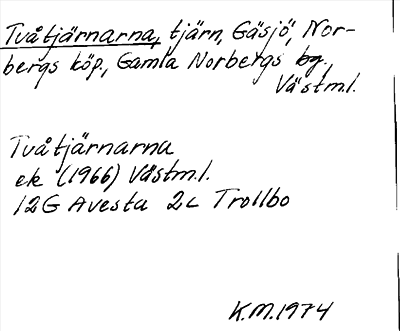 Tvåtjärnarna, tjärn, Gäsjö, Nor-
bergs köp., Gamla Norbergs bg.,
Västml.
Tvåtjärnarna
ek (1966) Västml.
12G Avesta 2c Trollbo
K.M.1974